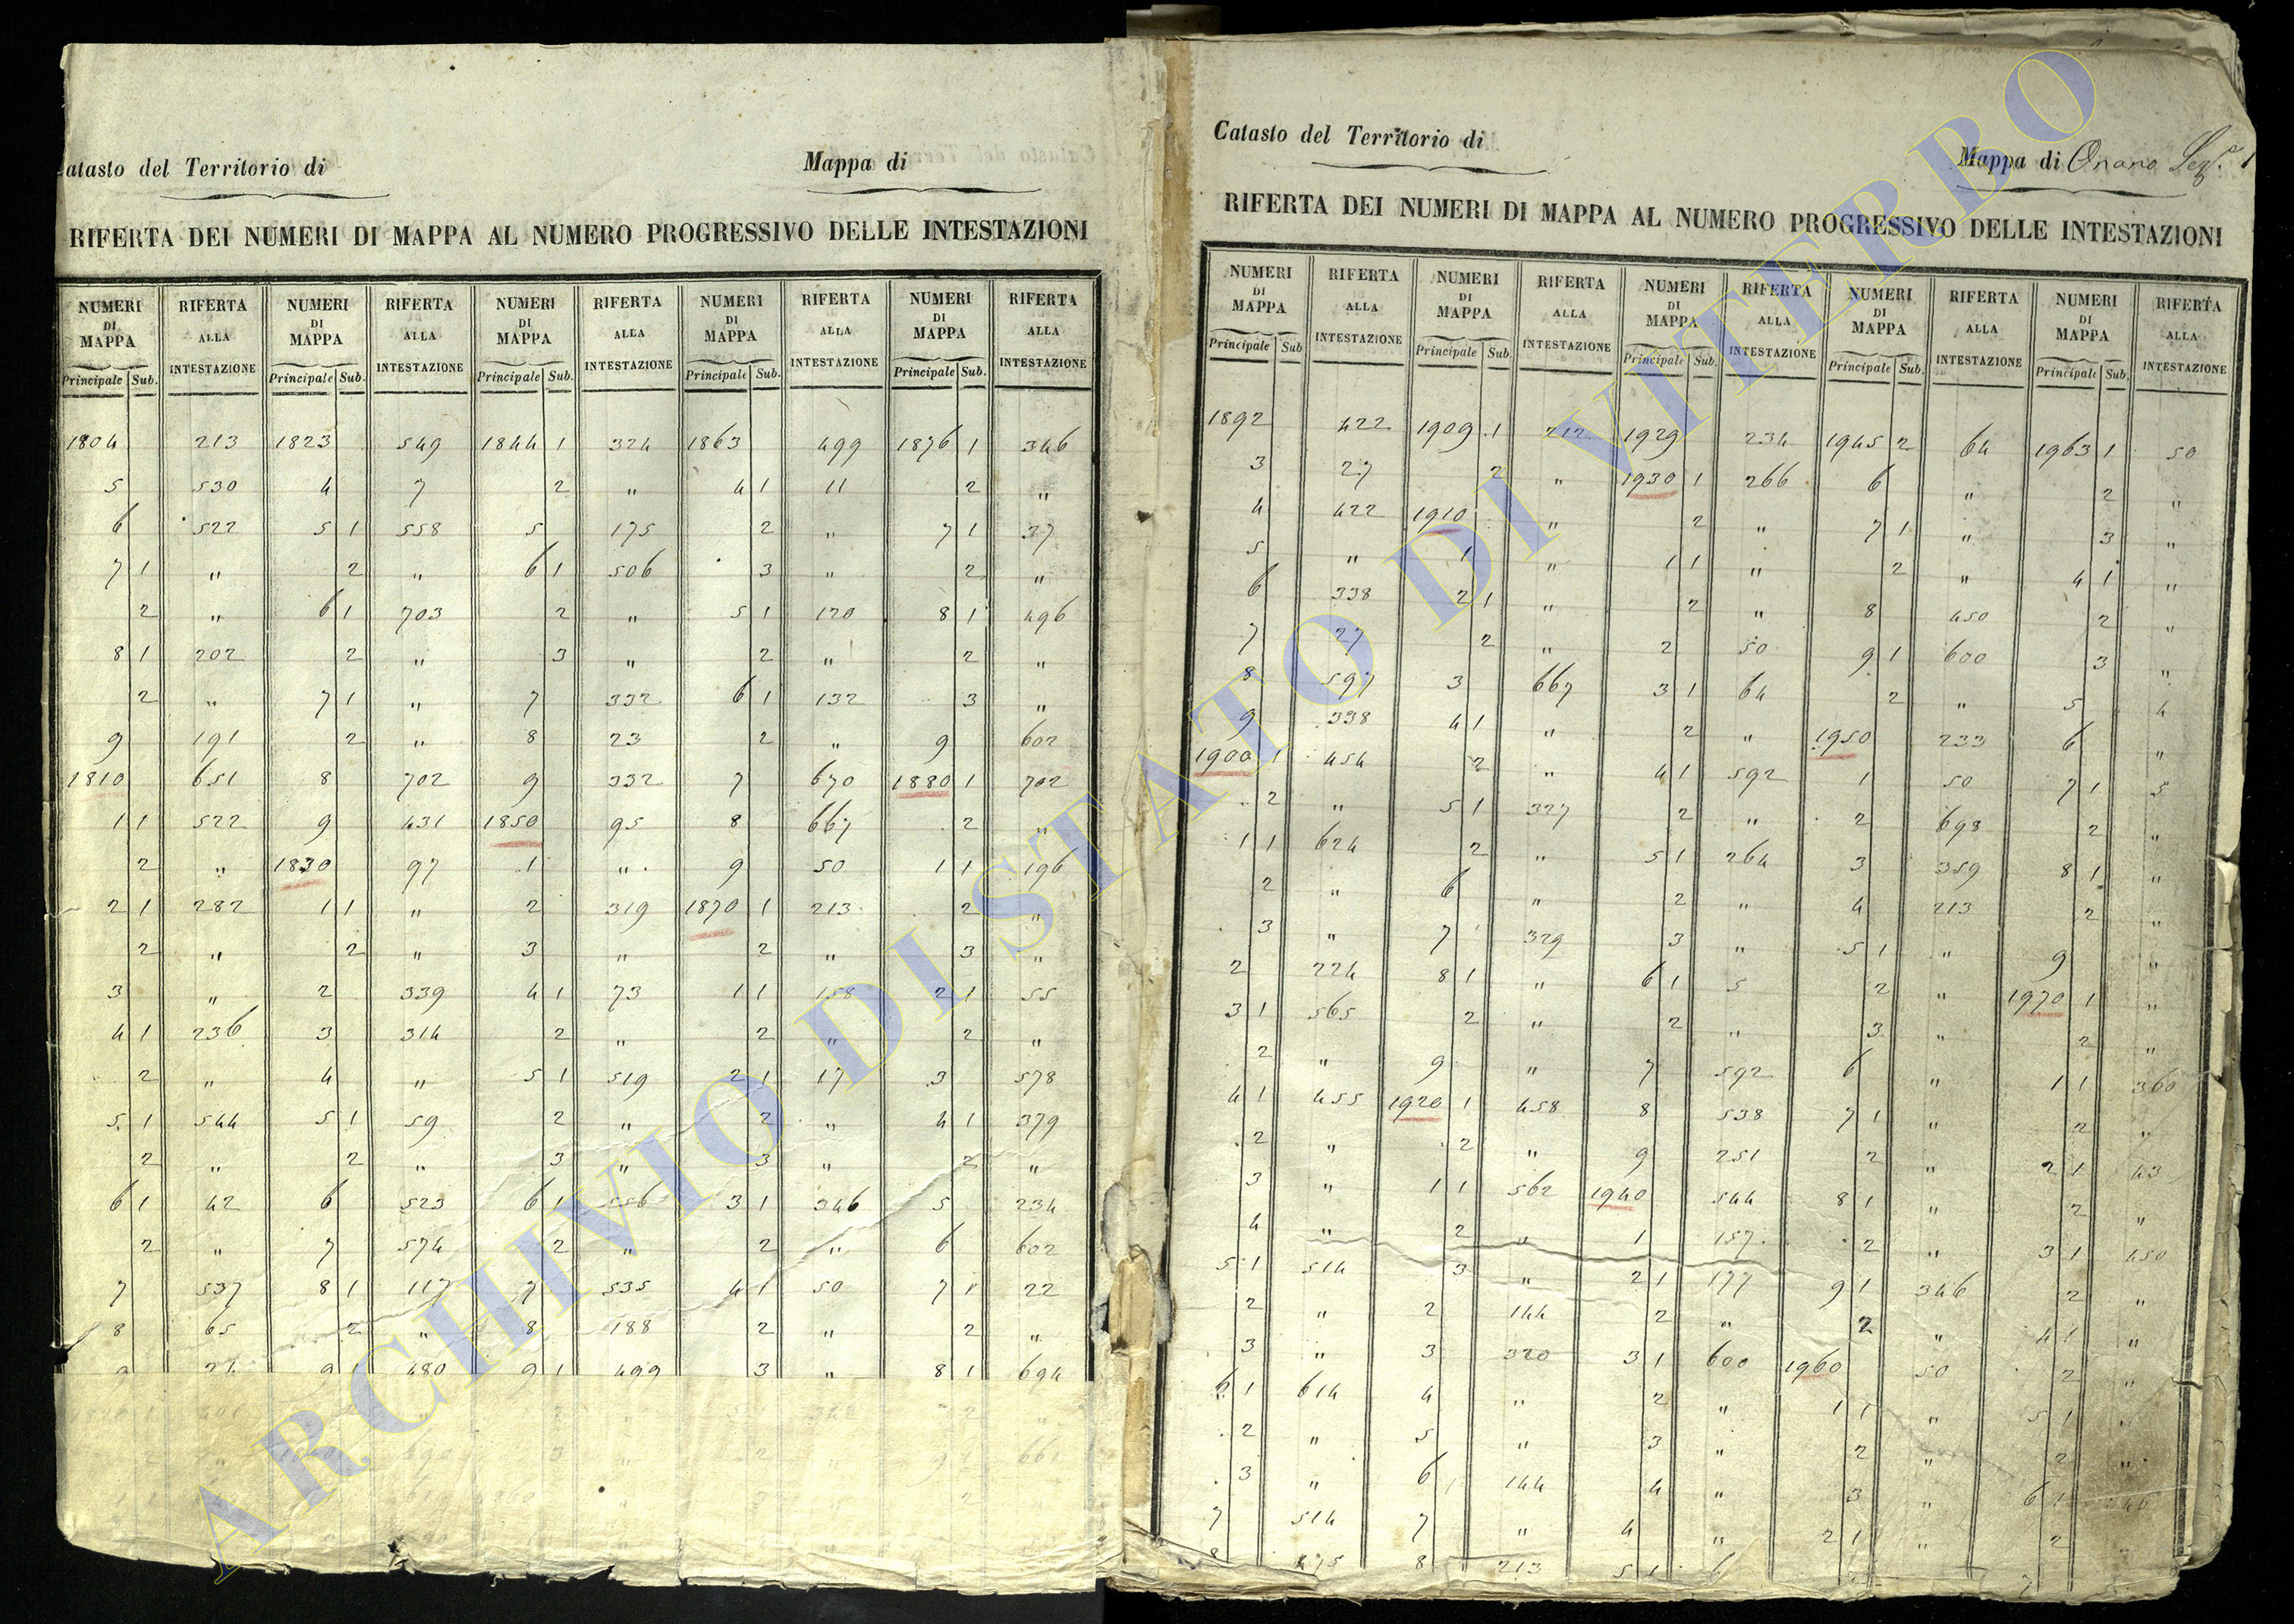 Catasto del Territorio di Mappa di
RIFERTA DEI NUMERI DI MAPPA AL NUMERO PROGRESSIVO DELLE INTESTAZIONI
NUMERI RIFERTA NUMERI RIFERTA NUMERI RIFERTA NUMERI RIFERTA NUMERI RIFERTA
DI ALLA DI ALLA DI ALLA DI ALLA DI ALLA
MAPPA INTESTAZIONE MAPPA INTESTAZIONE MAPPA INTESTAZIONE MAPPA INTESTAZIONE MAPPA INTESTAZIONE
Principale Sub. Principale Sub. Principale Sub. Principale Sub. Principale Sub.
1804 213 1823 549 1844 1 324 1863 499 1876 1 346
5 530 4 7 2 " 4 1 11 2 "
6 522 5 1 558 5 175 2 " 7 1 37
7 1 " 2 " 6 1 506 3 " 2 "
2 " 6 1 703 2 " 5 1 120 8 1 496
8 1 202 2 " 3 " 2 " 2 "
2 " 7 1 " 7 332 6 1 132 3 "
9 191 2 " 8 23 2 " 9 602
1810 651 8 702 9 332 7 670 1880 1 702
1 1 522 9 431 1850 95 8 667 2 "
2 " 1830 97 1 " 9 50 1 1 196
2 1 282 1 1 " 2 319 1870 1 213 2 "
2 " 2 " 3 " 2 " 3 "
3 " 2 339 4 1 73 1 1 158 2 1 55
4 1 236 3 314 2 " 2 " 2 "
2 " 4 " 5 1 519 2 1 17 3 578
5 1 544 5 1 59 2 " 2 " 4 1 379
2 " 2 " 3 " 3 " 2 "
6 1 42 6 523 6 1 556 3 1 346 5 234
2 " 7 574 2 " 2 " 6 602
7 537 8 1 117 7 535 4 1 50 7 1 22
8 65 2 " 8 188 2 " 2 "
9 24 9 1 480 9 1 499 3 " 8 1 694
Catasto del Territorio di Mappa di Onano Sez.e 1
RIFERTA DEI NUMERI DI MAPPA AL NUMERO PROGRESSIVO DELLE INTESTAZIONI
NUMERI RIFERTA NUMERI RIFERTA NUMERI RIFERTA NUMERI RIFERTA NUMERI RIFERTA
DI ALLA DI ALLA DI ALLA DI ALLA DI ALLA
MAPPA INTESTAZIONE MAPPA INTESTAZIONE MAPPA INTESTAZIONE MAPPA INTESTAZIONE MAPPA INTESTAZIONE
Principale Sub Principale Sub. Principale Sub. Principale Sub. Principale Sub.
1892 422 1909 1 212 1929 234 1945 2 64 1963 1 50
3 27 2 " 1930 1 266 6 " 2 "
4 422 1910 " 2 " 7 1 " 3 "
5 " 1 " 1 1 " 2 " 4 1 "
6 338 2 1 " 2 " 8 450 2 "
7 27 2 " 2 50 9 1 600 3 "
8 597 3 667 3 1 64 2 " 5 4
9 338 4 1 " 2 " 1950 233 6 "
1900 1 454 2 " 4 1 592 1 50 7 1 5
2 " 5 1 327 2 " 2 698 2 "
1 1 624 2 " 5 1 264 3 359 8 1 "
2 " 6 " 2 " 4 213 2 "
3 " 7 329 3 " 5 1 " 9 "
2 224 8 1 " 6 1 5 2 " 1970 1 "
3 1 565 2 " 2 " 3 " 2 "
2 " 9 " 7 592 6 " 1 1 360
4 1 455 1920 1 458 8 538 7 1 " 2 "
2 " 2 " 9 251 2 " 2 1 43
3 " 1 1 562 1940 544 8 1 " 2 "
4 " 2 " 1 157 2 " 3 1 450
5 1 514 3 " 2 1 177 9 1 346 2 "
2 " 2 144 2 " 2 " 4 1 "
3 " 3 320 3 1 600 1960 50 2 "
6 1 614 4 " 2 " 1 1 " 5 1 "
2 " 5 " 3 " 2 " 2 "
3 " 6 144 4 " 3 " 6 1 346
7 514 7 " 4 " 2 1 " 2
8 275 8 213 5 1 6
ARCHIVIO DI STATO DI VITERBO